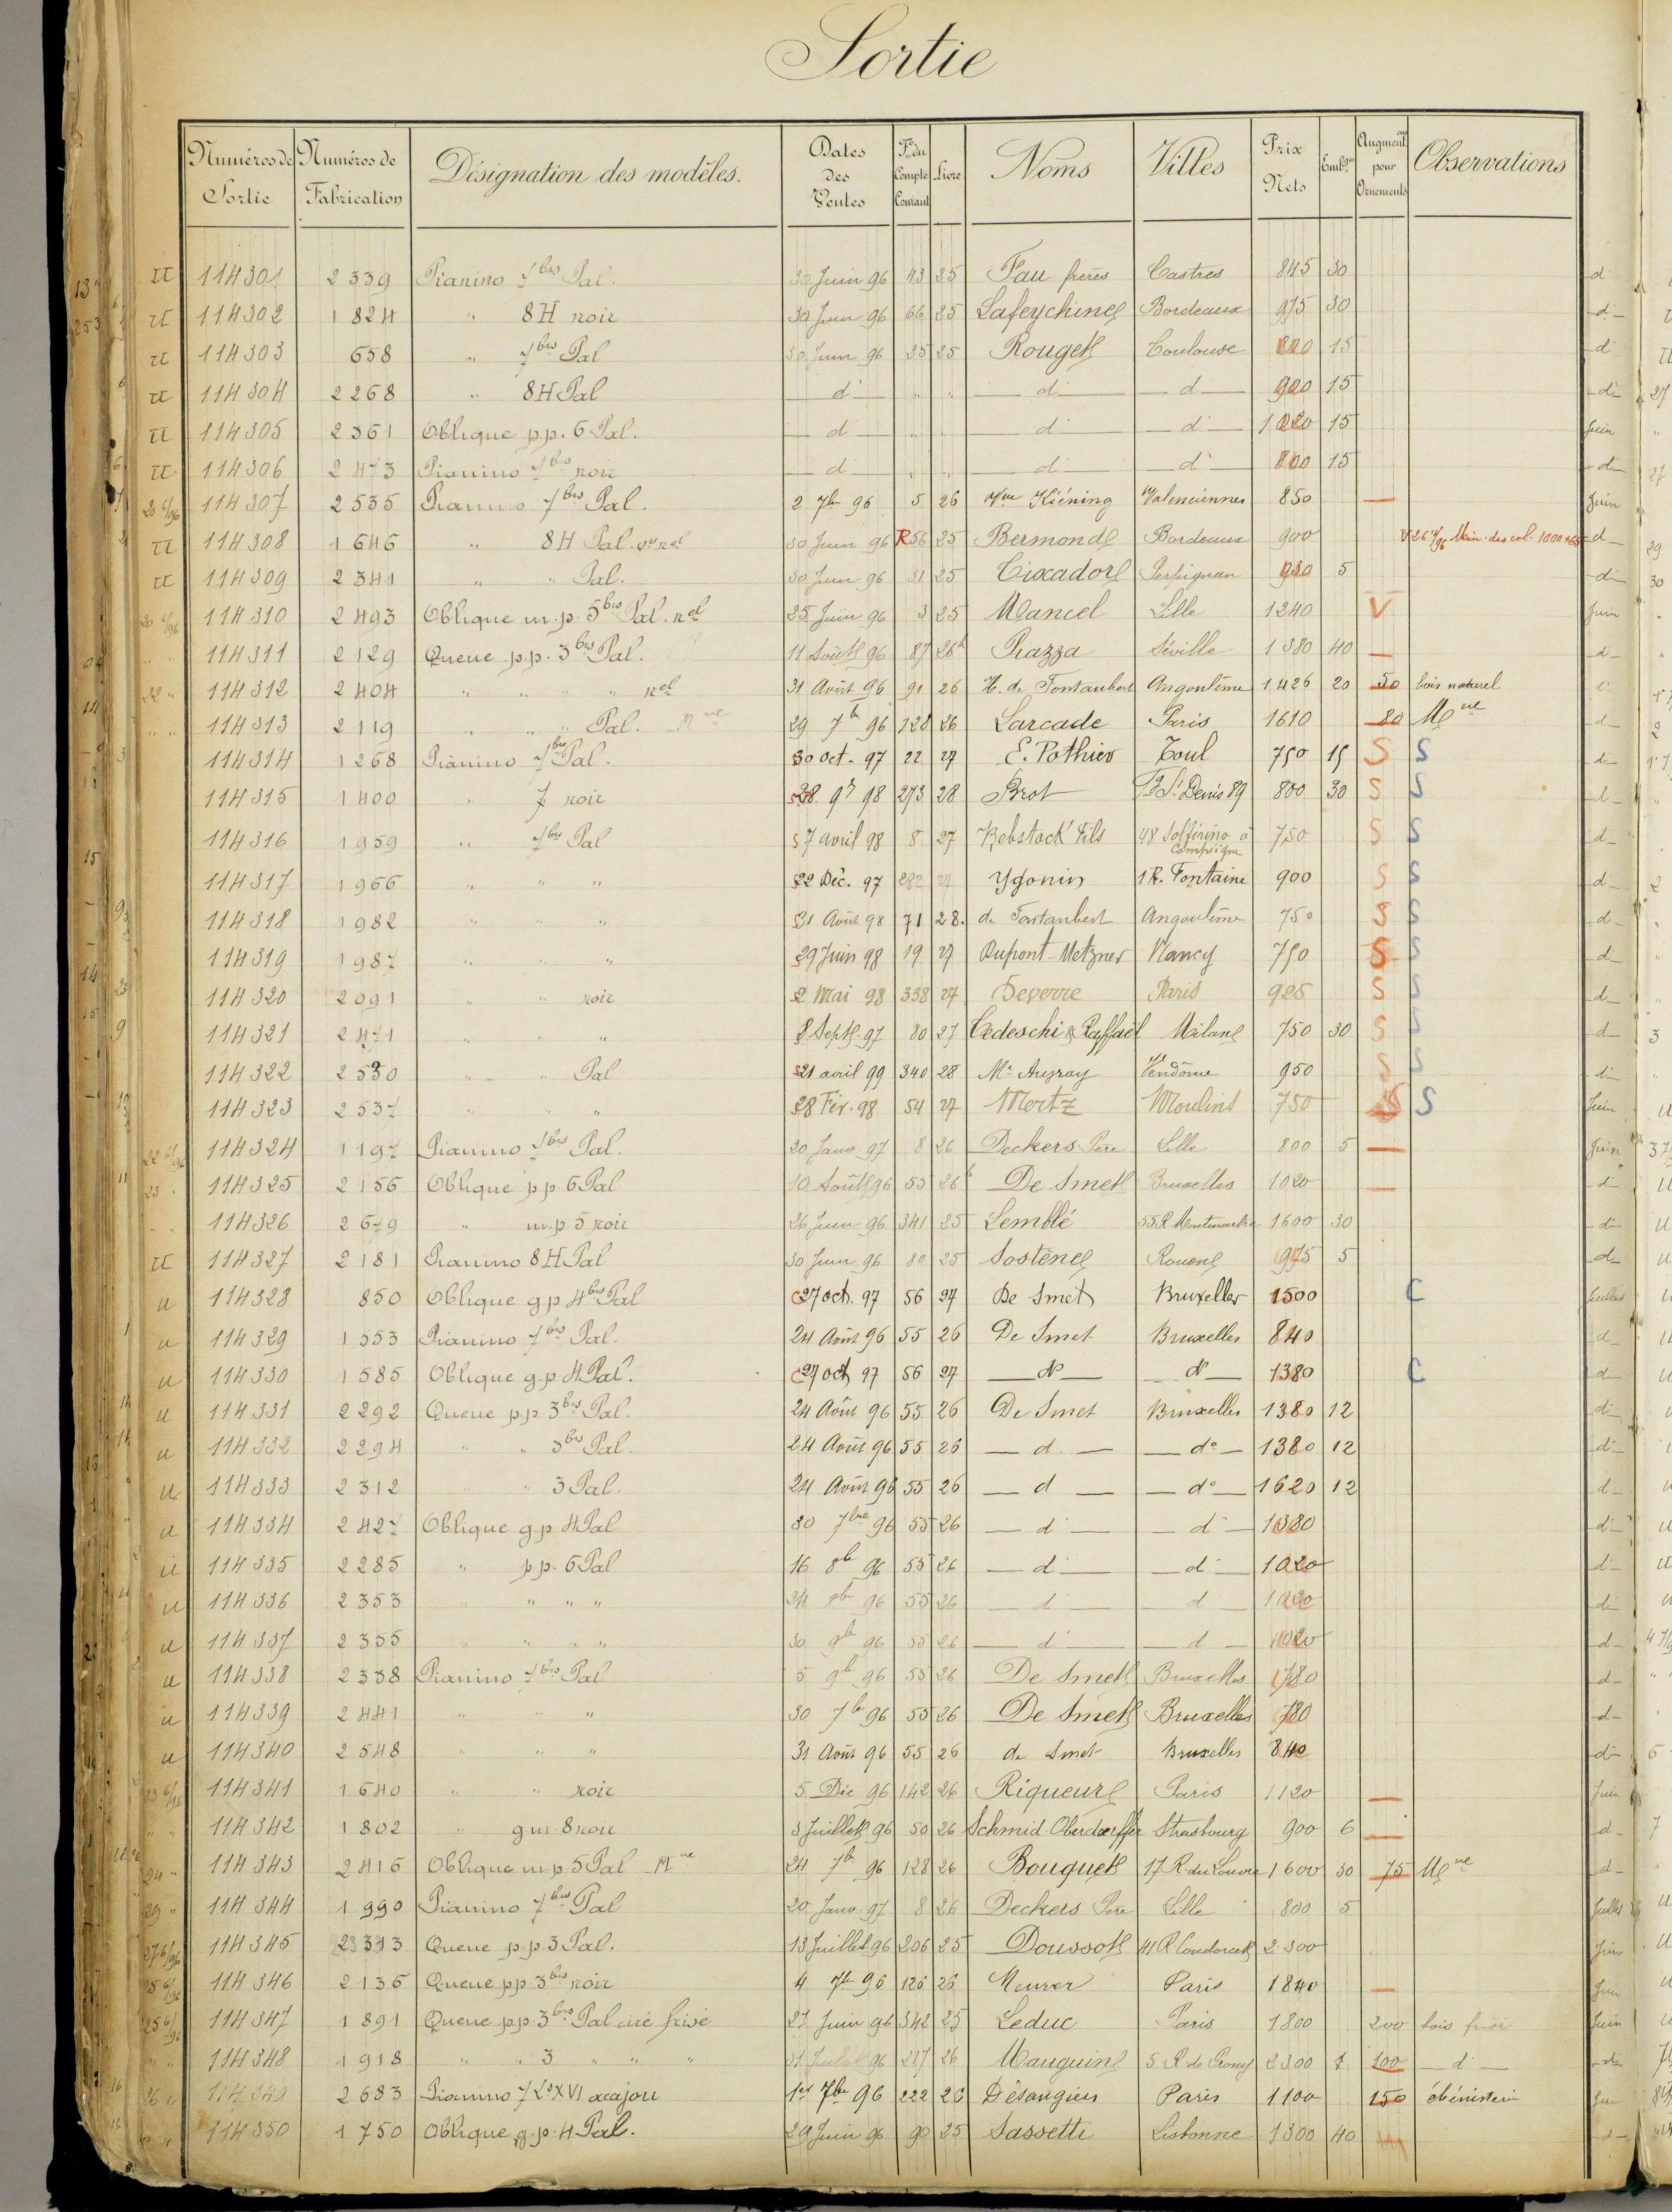 Sortie
Numéros de Sortie Numéros de Fabrication Désignation des modèles. Dates des Ventes Fo du Compte Courant Livre Noms Villes Prix Nets Emb. Augment pour Ornements Observations
114301 2339 Pianino 7bis Pal. 30 Juin 96 43 25 Fau frères Castres 845 30
114302 1824 " 8H noir 30 Juin 96 66 25 Lafeychine Bordeaux 975 30
114303 658 " 7bis Pal 30 Juin 96 25 25 Rouget Toulouse 15
114304 2268 " 8H Pal d° " " d° d° 900 15
114305 2361 Oblique p.p. 6 Pal. d° " " d° d° 1020 15
114306 2473 Pianino 7bis noir d° " " d° d° 800 15
114307 2535 Pianino 7bis Pal. 2 7bre 96 5 26 Vve Kiéning Valenciennes 850 —
114308 1646 " 8H Pal. 30 Juin 96 R56 25 Bermond Bordeaux 900
114309 2341 " " Pal. 30 Juin 96 31 25 Tixador Perpignan 930 5
114310 2493 Oblique m.p. 5bis Pal. nel 25 Juin 96 3 25 Mancel Lille 1240 V
114311 2129 Queue p.p. 3bis Pal. 11 Août 96 87 26 Piazza Séville 1380 40 —
114312 2404 " " " " nel 31 Août 96 91 26 H. de Fontaubert Angoulême 1426 20 50 bois naturel
114313 2119 " " " Pal. Mne 29 7b 96 128 26 Larcade Paris 1610 80 Mne
114314 1268 Pianino 7bis Pal. 30 Oct. 97 22 27 E. Pothier Toul 750 15 S S
114315 1400 " 7 noir 28 9b 98 273 28 Brot Fg St Denis 89 800 30 S S
114316 1959 " 7bis Pal 7 avril 98 8 27 Rebstock Fils 48 Solférino à Compiègne 750 S S
114317 1966 " " " 22 Déc. 97 282 27 Ygonin 1 R. Fontaine 900 S S
114318 1982 " " " 31 Août 98 71 28 de Fontaubert Angoulême 750 S S
114319 1987 " " " 29 Juin 98 19 27 Dupont-Metzner Nancy 750 S S
114320 2091 " " noir 2 Mai 98 338 27 Deverre Paris 925 S S
114321 2471 " " " 8 Sept. 97 80 27 Tedeschi & Raffael Milan 750 30 S S
114322 2530 " " Pal 21 avril 99 340 28 Mr Auzray Vendôme 950 S S
114323 2537 " " " 28 Fév. 98 54 27 Mertz Moulins 750 S S
114324 1197 Pianino 7bis Pal. 20 Janv. 97 8 26 Deckers Père Lille 800 5 —
114325 2156 Oblique p.p. 6 Pal 10 Août 96 55 26 De Smet Bruxelles 1020 —
114326 2679 " m.p. 5 noir 26 Juin 96 341 25 Lemblé 55 R. Montmartre 1600 30
114327 2181 Pianino 8H Pal 30 Juin 96 80 25 Sostène Rouen 975 5
114328 850 Oblique g.p. 4bis Pal 27 oct. 97 56 27 De Smet Bruxelles 1500 C
114329 1353 Pianino 7bis Pal. 24 Août 96 55 26 De Smet Bruxelles 840
114330 1585 Oblique g.p. 4 Pal. 27 oct 97 56 27 d° d° 1380 C
114331 2292 Queue p.p. 3bis Pal. 24 Août 96 55 26 De Smet Bruxelles 1380 12
114332 2294 " " 3bis Pal. 24 Août 96 55 26 d° d° 1380 12
114333 2312 " " 3 Pal. 24 Août 96 55 26 d° d° 1620 12
114334 2427 Oblique g.p. 4 Pal 30 7bre 96 55 26 d° d° 1380
114335 2285 " p.p. 6 Pal 16 8b 96 55 26 d° d° 1020
114336 2353 " " " " 24 8b 96 55 26 d° d° 1020
114337 2355 " " " " 30 9b 96 55 26 d° d° 1020
114338 2338 Pianino 7bis Pal 5 9b 96 55 26 De Smet Bruxelles 780
114339 2441 " " " 30 7b 96 55 26 De Smet Bruxelles 780
114340 2548 " " " 31 Août 96 55 26 de Smet Bruxelles 840
114341 1640 " " noir 5 Déc 96 142 26 Riqueur Paris 1120 —
114342 1802 " g.m. 8 noir 3 Juillet 96 50 26 Schmid-Oberdoerffer Strasbourg 900 6 —
114343 2416 Oblique m.p. 5 Pal Mne 24 7b 96 128 26 Bouquet 17 R du Louvre 1600 30 75 Mne
114344 1990 Pianino 7bis Pal 20 Janv. 97 8 26 Deckers Père Lille 800 5
114345 Queue p.p. 3 Pal. 13 Juillet 96 206 25 Doussot 41 R Condorcet 2300
114346 2136 Queue p.p. 3bis noir 4 7b 96 126 26 Meurer Paris 1840 —
114347 1891 Queue p.p. 3bis Pal ciré frisé 27 Juin 96 342 25 Leduc Paris 1800 200 bois frisé
114348 1918 " " 3 " " " 31 Juillet 96 217 26 Mauguin 5 R de Prony 2300 100 d°
114349 2683 Pianino 7 Ls XVI acajou 1er 7bre 96 222 26 Désaugiers Paris 1100 150 ébénisterie
114350 1750 Oblique g.p. 4 Pal. 29 Juin 96 90 25 Sassetti Lisbonne 1300 40